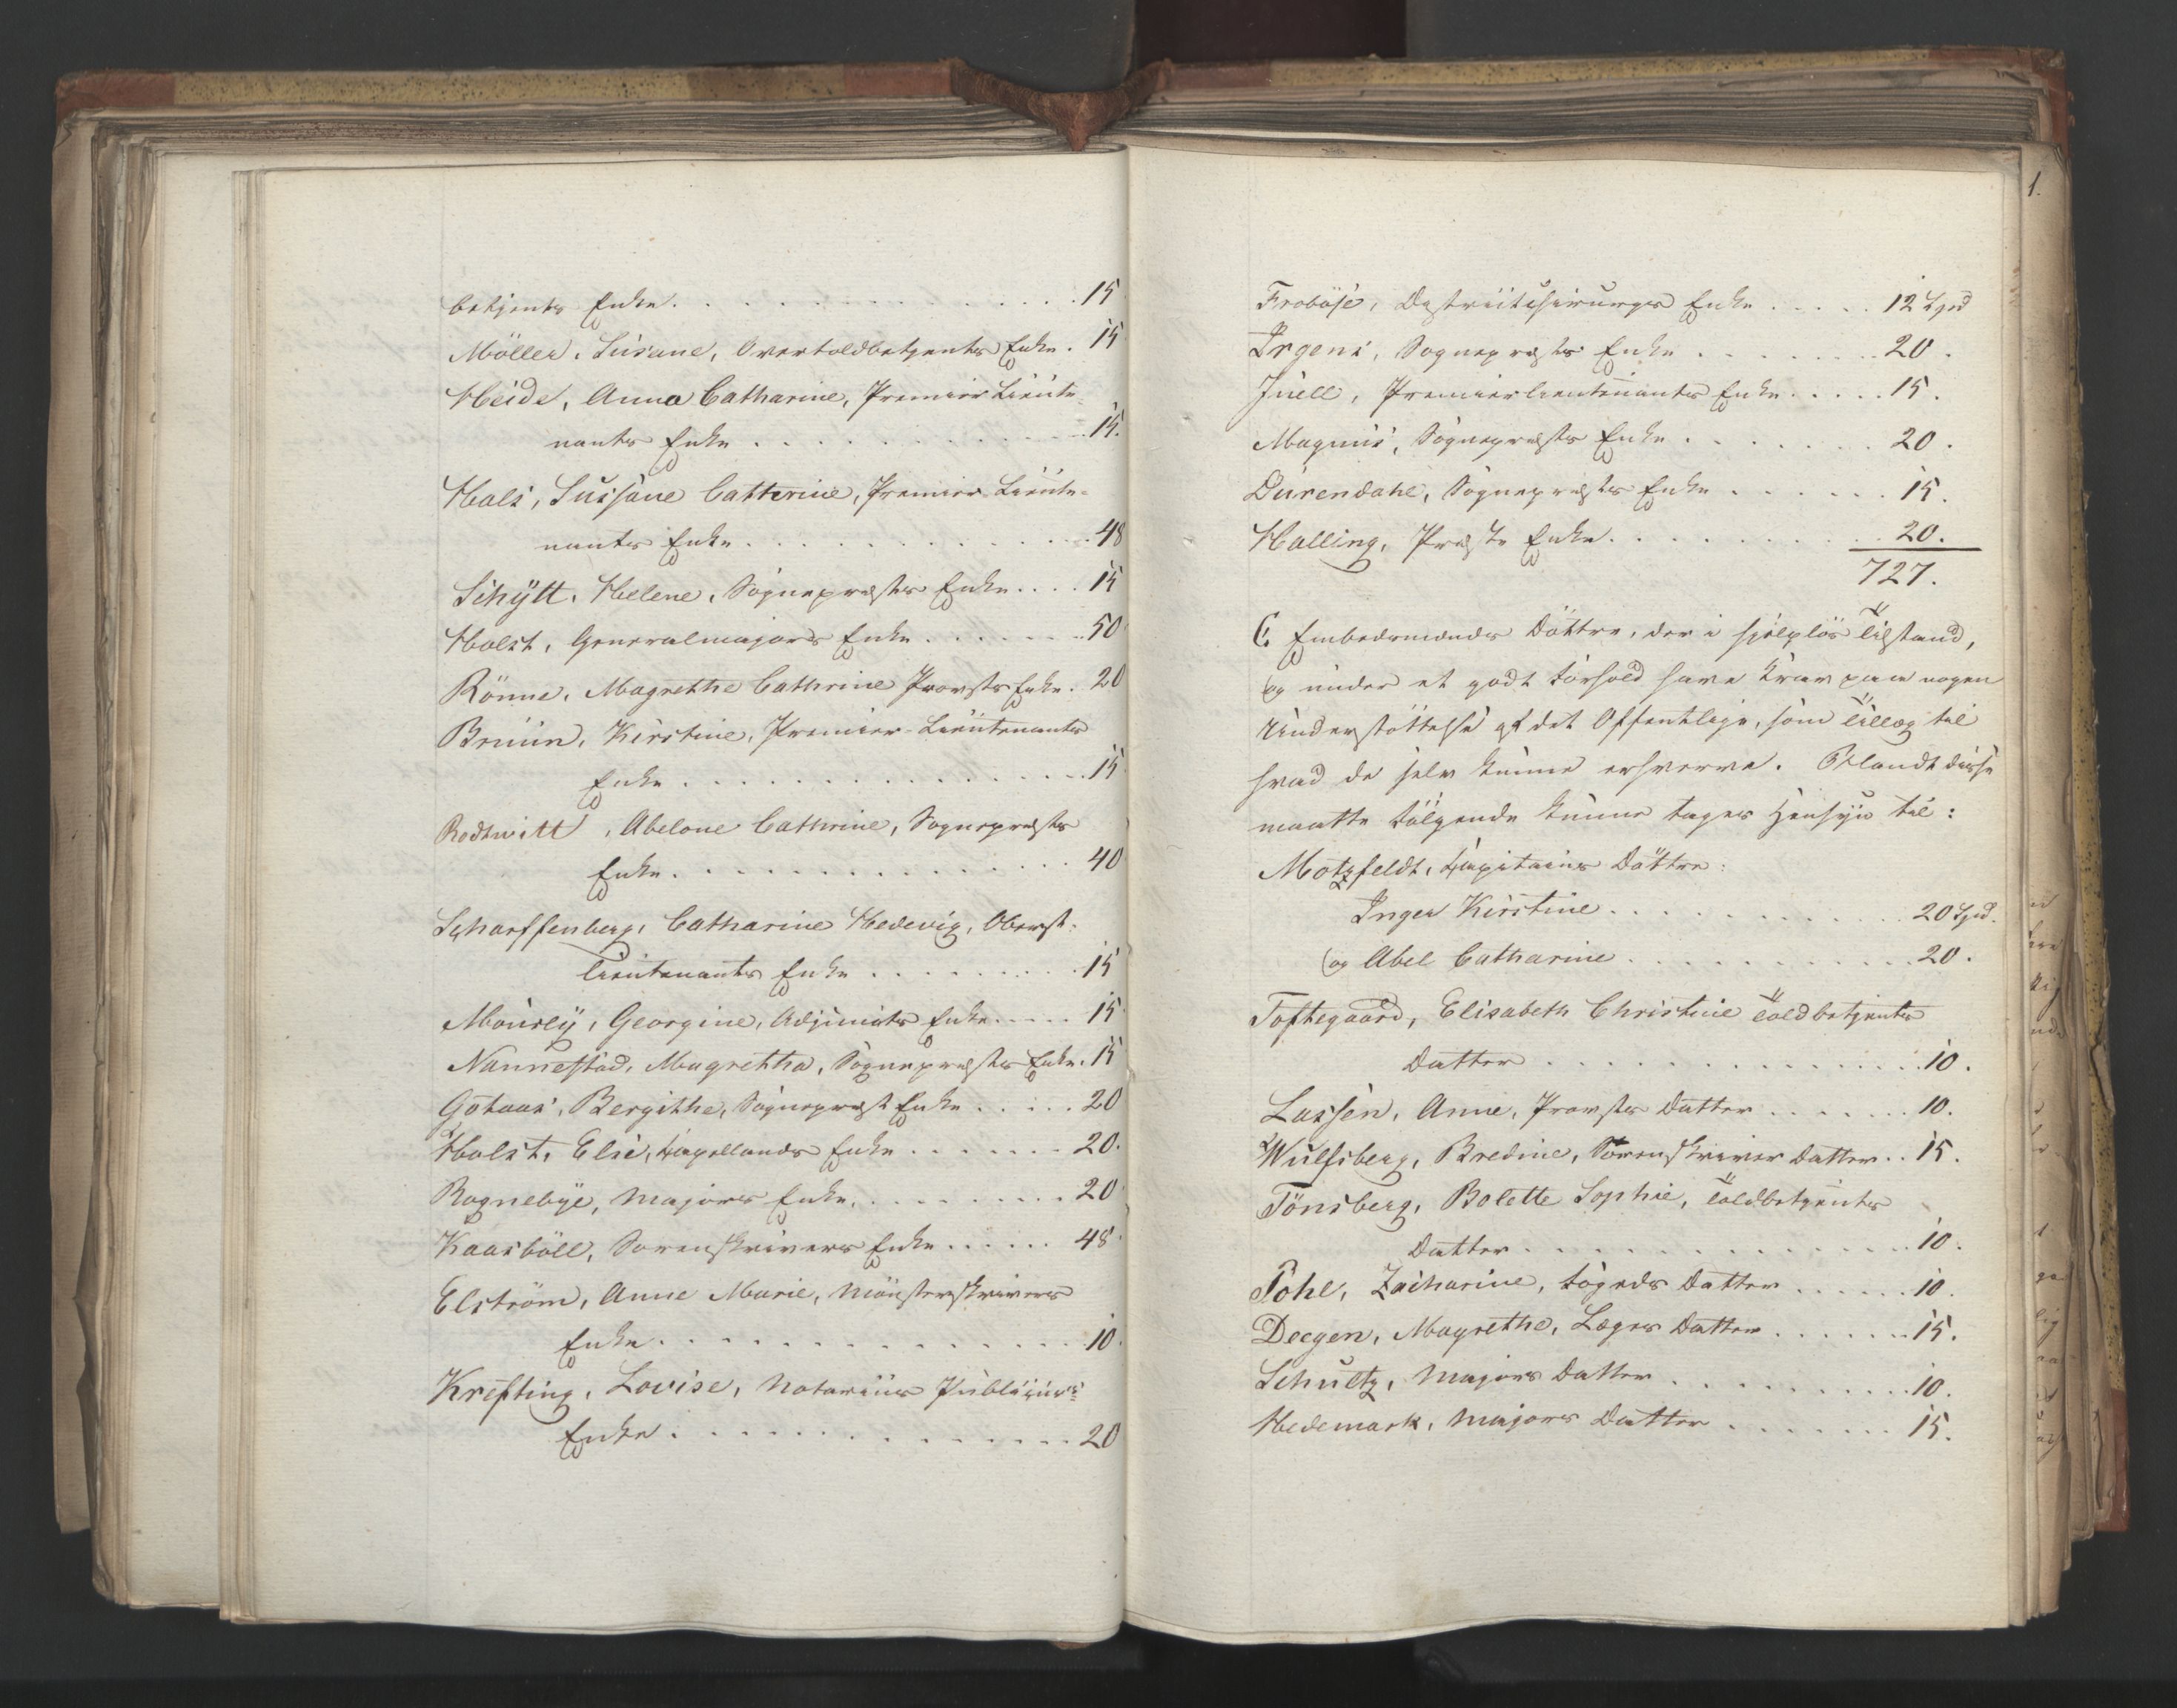 betjents Enke . . . . . . . . . . . . . 15
Möller, Susane, Overtoldbetjents Enke . 15
Heide, Anna Catharine, Premier Lieute-
nants Enke . . . . . . . . . . . . 15.
Hals, Sussane Catterine, Premier-Lieute-
nants Enke . . . . . . . . . . . . 48
Schÿtt, Helene, Sognepræsts Enke . . . . 15
Holst, Generalmajors Enke . . . . . . 50
Rönne, Magrethe Cathrine Provsts Enke . 20
Bruun, Kirstine, Premier-Lieutenants
Enke . . . . . . . . . . . . . . 15
Rodtwitt, Abelone Cathrine, Sognepræsts
Enke . . . . . . . . . . . . . . 40
Scharffenberg, Catharine Hedevig, Oberst-
lieutenants Enke . . . . . . . . . 15
Mouritz, Georgine, Adjuncts Enke . . . . 15
Nannestad, Magretha, Sognepræsts Enke . 15
Götaas, Bergithe, Sognepræst Enke . . . . 20
Holst, Else, Kapellands Enke . . . . . . . 20.
Rognebye, Majors Enke . . . . . . . . . . 20
Kaasböll, Sorenskrivers Enke . . . . . . 48
Elström, Anne Marie, Mönsterskrivers
Enke . . . . . . . . . . . . . . . 10.
Krefting, Lovise, Notarius Publicus's
Enke . . . . . . . . . . . . . . . 20
1.
Froböse, Destrictschirurgs Enke . . . . . 12 Spd
Irgens, Sognepræsts Enke . . . . . . . . 20.
Juell, Premierlieutenants Enke . . . . . 15.
Magnus, Sognepræsts Enke . . . . . . . 20.
Durendahl, Sognepræsts Enke . . . . . . 15.
Halling, Præste Enke . . . . . . . . . . 20.
727.
C, Embedsmænds Döttre, der i hjelplös Tilstand,
og under et godt Forhold have Krav paa nogen
Understöttelse af det Offentlige, som Tillæg til
hvad de selv kunne erhverve. Blandt disse
maatte fölgende kunne tages Hensyn til:
Motzfeldt, Kapitains Döttre:
Inger Kirstine . . . . . . . . . . . . 20 Spd.
og Abel Catharine . . . . . . . . . . . 20.
Toftegaard, Elisabeth Christine Toldbetjents
Datter . . . . . . . . . . . . . . 10.
Lassen, Anne, Provsts Datter . . . . . . . 10.
Wulfsberg, Bredine, Sorenskriver Datter . . 15.
Tönsberg, Bolette Sophie, Toldbetjents
Datter . . . . . . . . . . . . . . . 10.
Pohl, Zacharine, Fogeds Datter . . . . . . 10.
Deegen, Magrethe, Læges Datter . . . . . . . 15.
Schultz, Majors Datter . . . . . . . . . . 10.
Hedemark, Majors Datter . . . . . . . 15.